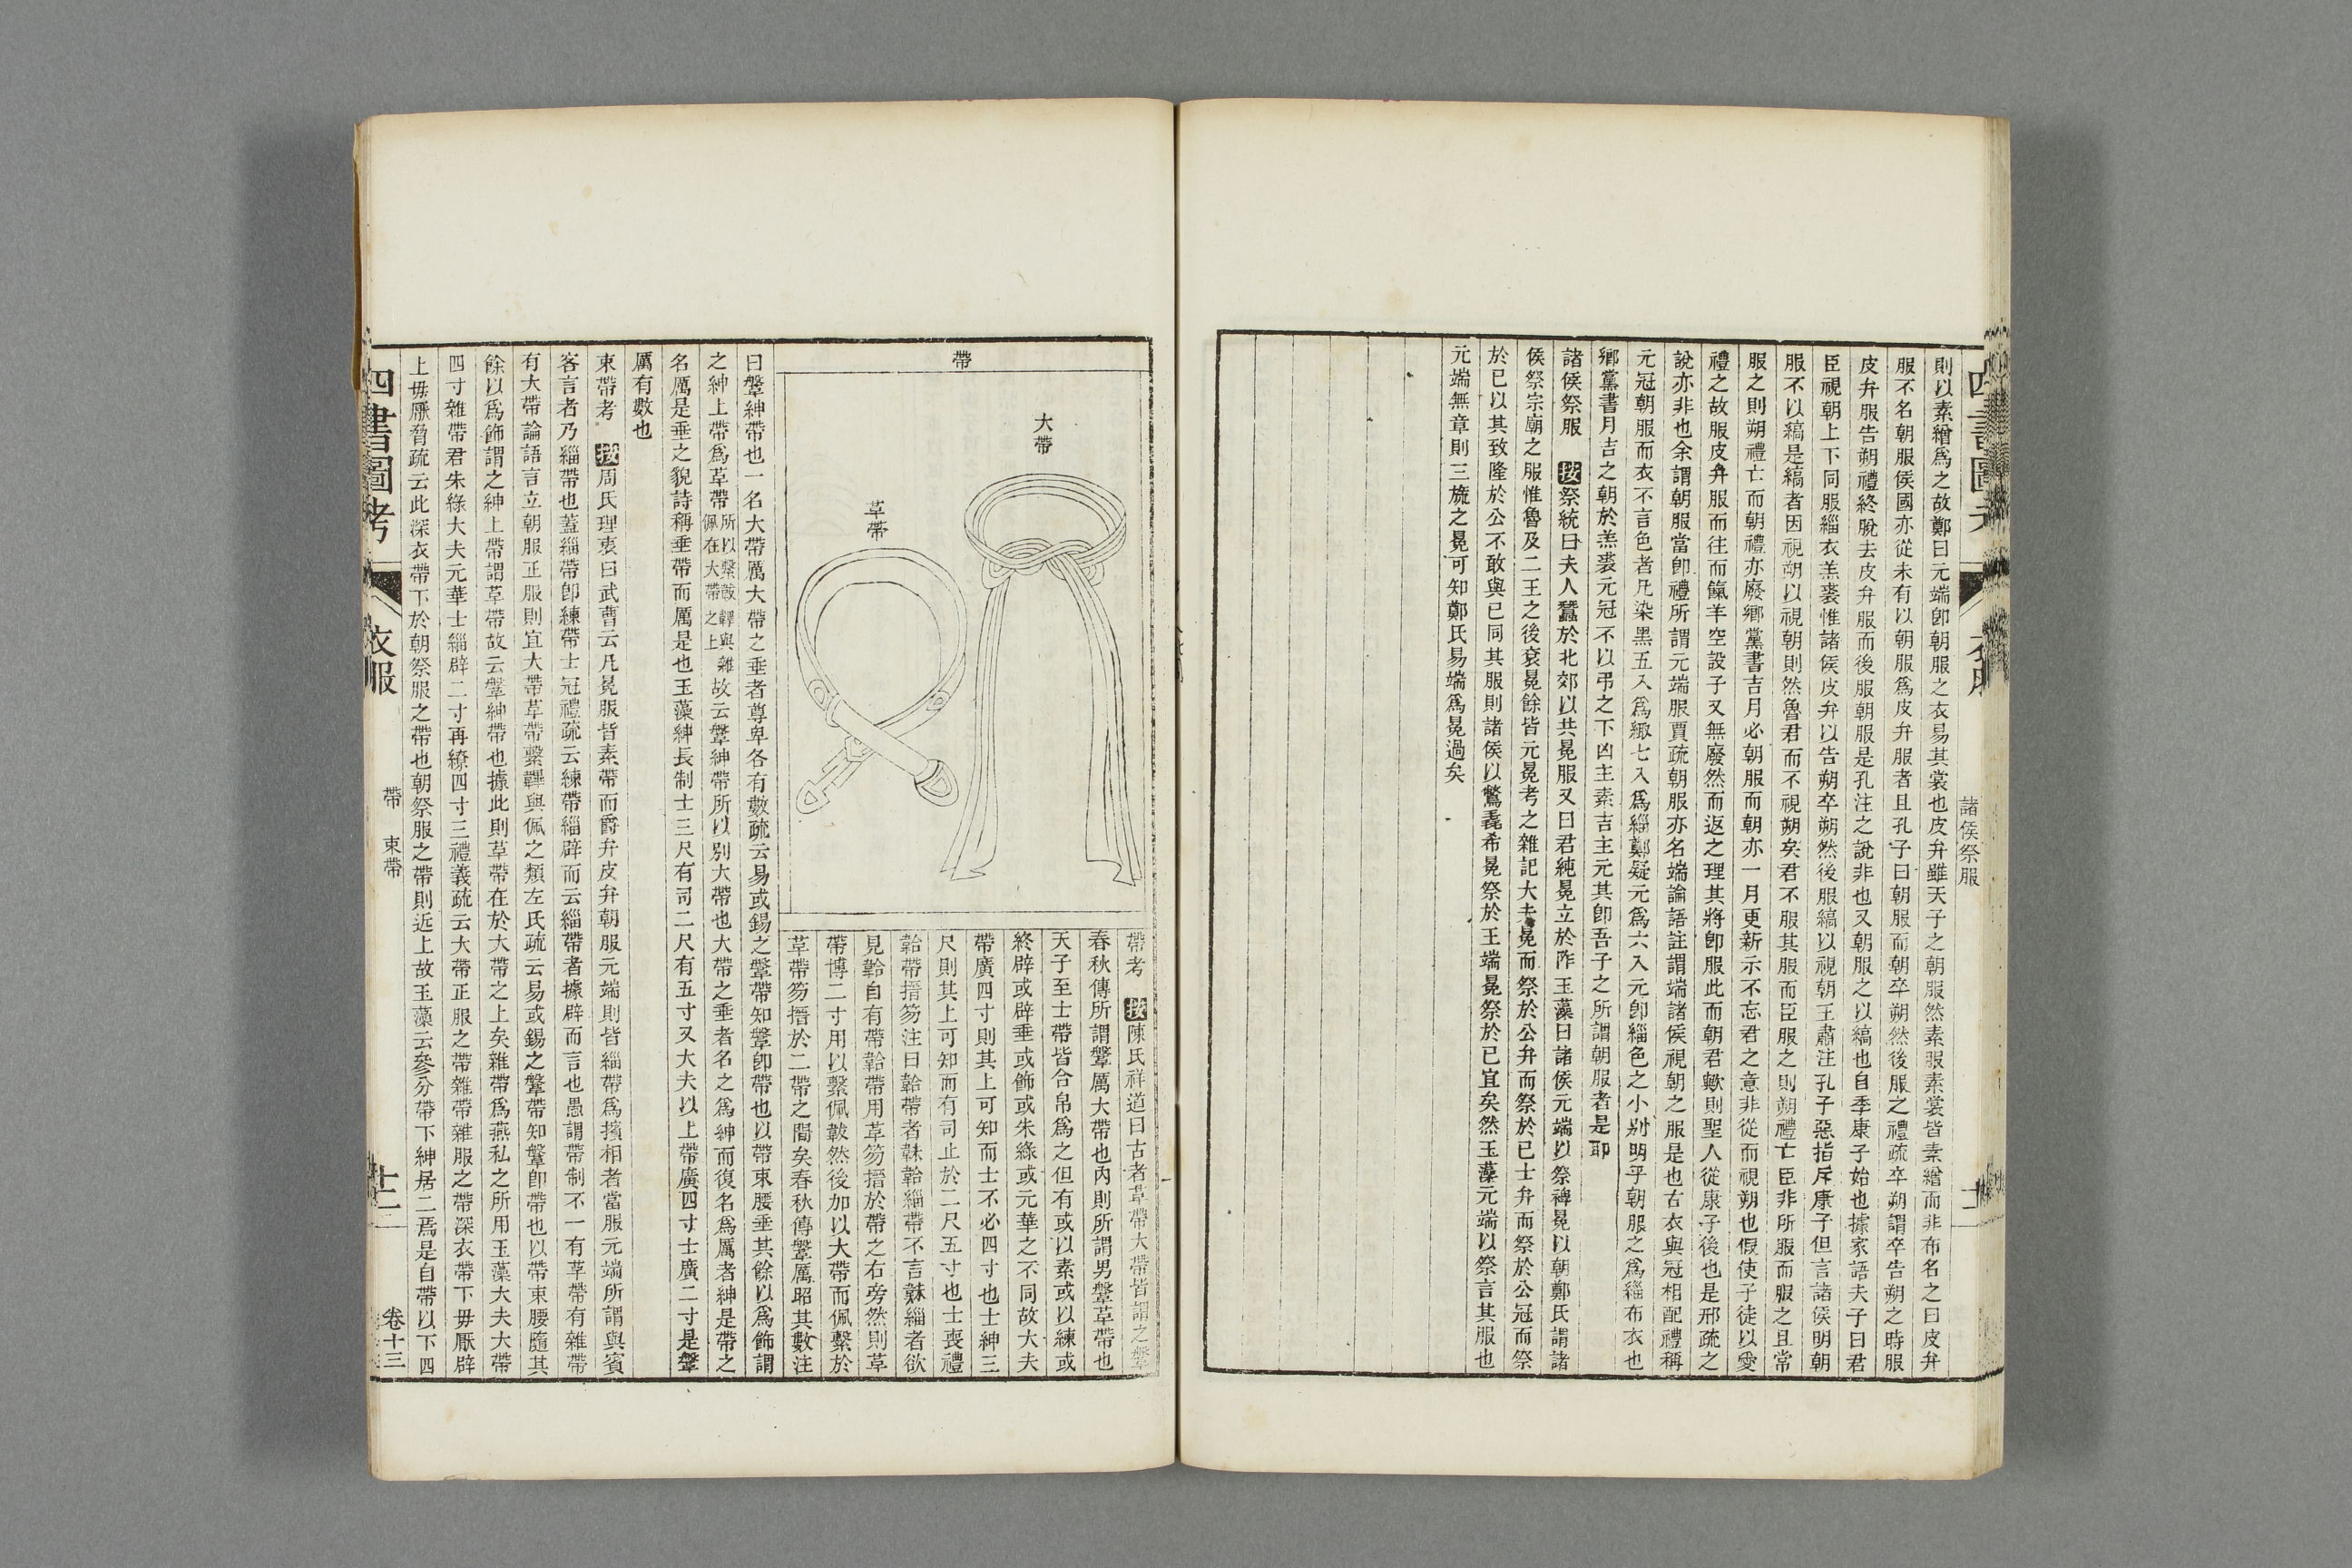 則以素繒爲之故鄭曰元端卽朝服之衣易其裳也皮弁雖天子之朝服然素服素裳皆素繒而非布名之曰皮弁
服不名朝服侯國亦從未有以朝服爲皮弁服者且孔子曰朝服而朝卒朔然後服之禮疏卒朔謂卒告朔之時服
皮弁服告朔禮終脫去皮弁服而後服朝服是孔注之說非也又朝服之以縞也自季康子始也據家語夫子曰君
臣視朝上下同服緇衣羔裘惟諸侯皮弁以告朔卒朔然後服縞以視朝王肅注孔子惡指斥康子但言諸侯明朝
服不以縞是縞者因視朔以視朝則然魯君而不視朔矣君不服其服而臣服之則朔禮亡臣非所服而服之且常
服之則朔禮亡而朝禮亦廢鄉黨書吉月必朝服而朝亦一月更新示不忘君之意非從而視朔也假使子徒以愛
禮之故服皮弁服而往而餼羊空設子又無廢然而返之理其將卽服此而朝君歟則聖人從康子後也是邢疏之
說亦非也余謂朝服當卽禮所謂元端服賈疏朝服亦名端論語註謂端諸侯視朝之服是也古衣與冠相配禮稱
元冠朝服而衣不言色者凡染黑五入爲緅七入爲緇鄭疑元爲六入元卽緇色之小別明乎朝服之爲緇布衣也
鄉黨書月吉之朝於羔裘元冠不以弔之下凶主素吉主元其卽吾子之所謂朝服者是耶
諸侯祭服 按祭統曰夫人蠶於北郊以共冕服又曰君純冕立於阼玉藻曰諸侯元端以祭裨冕以朝鄭氏謂諸
侯祭宗廟之服惟魯及二王之後袞冕餘皆元冕考之雜記大夫冕而祭於公弁而祭於已士弁而祭於公冠而祭
於已以其致隆於公不敢與已同其服則諸侯以鷩毳希冕祭於王端冕祭於已宜矣然玉藻元端以祭言其服也
元端無章則三旒之冕可知鄭氏易端爲冕過矣
諸侯祭服
帶
大帶
革帶
帶考 按陳氏祥道曰古者革帶大帶皆謂之鞶
春秋傳所謂鞶厲大帶也內則所謂男鞶革帶也
天子至士帶皆合帛爲之但有或以素或以練或
終辟或辟垂或飾或朱綠或元華之不同故大夫
帶廣四寸則其上可知而士不必四寸也士紳三
尺則其上可知而有司止於二尺五寸也士喪禮
韐帶搢笏注曰韐帶者韎韐緇帶不言韎緇者欲
見韐自有帶韐帶用革笏搢於帶之右旁然則革
帶博二寸用以繫佩韍然後加以大帶而佩繫於
革帶笏搢於二帶之閒矣春秋傳鞶厲昭其數注
曰鞶紳帶也一名大帶厲大帶之垂者尊卑各有數疏云易或錫之鞶帶知鞶卽帶也以帶束腰垂其餘以爲飾謂
之紳上帶爲革帶所以繫韍韠與雜佩在大帶之上故云鞶紳帶所以別大帶也大帶之垂者名之爲紳而復名爲厲者紳是帶之
名厲是垂之貌詩稱垂帶而厲是也玉藻紳長制士三尺有司二尺有五寸又大夫以上帶廣四寸士廣二寸是鞶
厲有數也
束帶考 按周氏理衷曰武曹云凡冕服皆素帶而爵弁皮弁朝服元端則皆緇帶爲擯相者當服元端所謂與賓
客言者乃緇帶也蓋緇帶卽練帶士冠禮疏云練帶緇辟而云緇帶者據辟而言也愚謂帶制不一有革帶有雜帶
有大帶論語言立朝服正服則宜大帶革帶繫韠與佩之類左氏疏云易或錫之鞶帶知鞶卽帶也以帶束腰隨其
餘以爲飾謂之紳上帶謂革帶故云鞶紳帶也據此則革帶在於大帶之上矣雜帶爲燕私之所用玉藻大夫大帶
四寸雜帶君朱綠大夫元華士緇辟二寸再繚四寸三禮義疏云大帶正服之帶雜帶雜服之帶深衣帶下毋厭髀
上毋厭脅疏云此深衣帶下於朝祭服之帶也朝祭服之帶則近上故玉藻云參分帶下紳居二焉是自帶以下四
四書圖考 衣服 帶 束帶 十二 卷十三